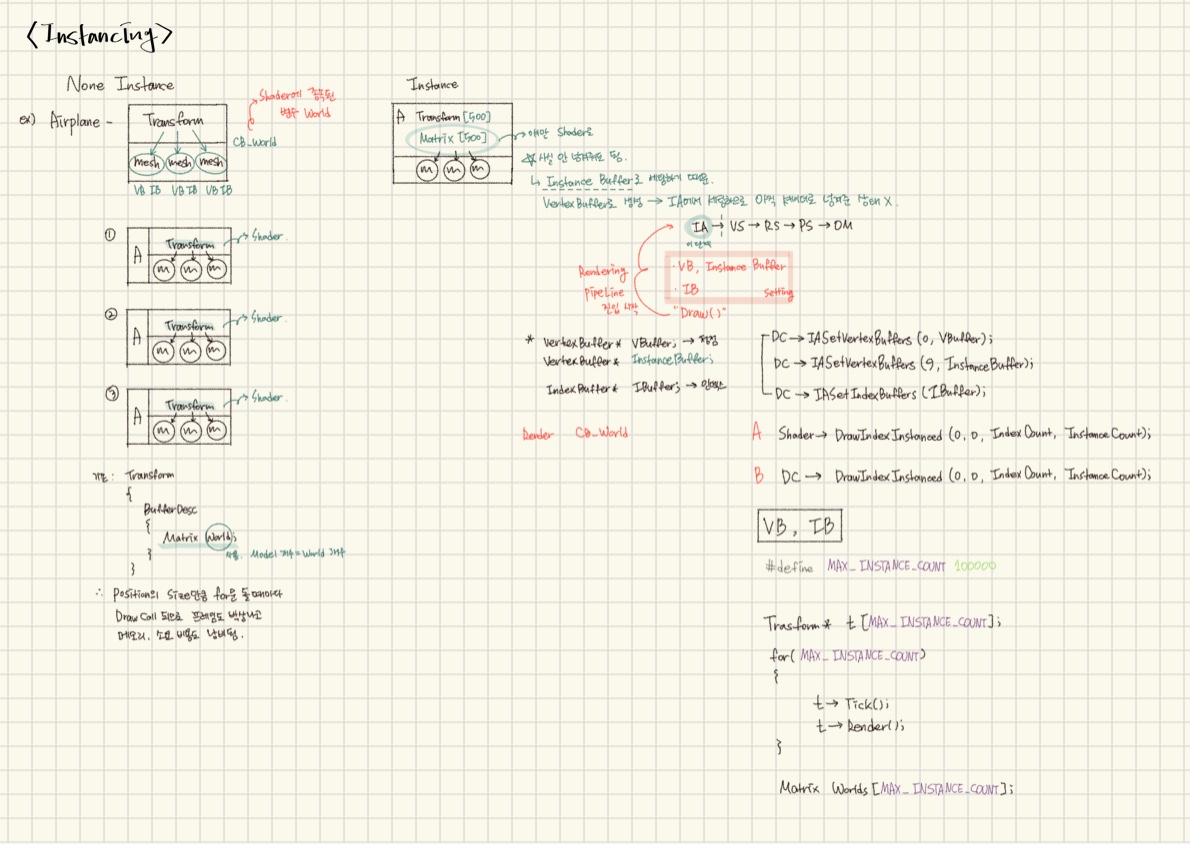 <Instancing>
None Instance
ex) Airplane -
Transform
mesh mesh mesh
VB IB VB IB VB IB
CB_World
Shader에 종속된
변수 World
① A Transform → Shader.
m m m
② A Transform → Shader.
m m m
③ A Transform → Shader.
m m m
Transform
{
BufferDesc
{
Matrix World;
Model 개수 = World 개수
}
}
∴ Position의 Size만큼 for문 돌때마다
Draw Call 되므로 프레임도 박살나고
메모리, 소모 비용도 낭비됨.
Instance
A Transform [500]
Matrix [500]
m m m
→ 얘만 Shader로
☆ 사실 안 넘겨줘도 됨.
↳ Instance Buffer로 세팅하기 때문.
VertexBuffer로 생성 → IA에서 세팅하므로 아직 쉐이더로 넘겨준 상태 X.
IA → VS → RS → PS → OM
이 단계
Rendering
PipeLine
진입 시작
· VB, Instance Buffer
· IB
Setting
"Draw()"
* VertexBuffer* VBuffer; → 정점
VertexBuffer* InstanceBuffer;
IndexBuffer* IBuffer; → 인덱스
DC → IASetVertexBuffers (0, VBuffer);
DC → IASetVertexBuffers (9, InstanceBuffer);
DC → IASetIndexBuffers (IBuffer);
Render CB_World
A Shader → DrawIndexInstanced (0, 0, IndexCount, InstanceCount);
B DC → DrawIndexInstanced (0, 0, IndexCount, InstanceCount);
VB, IB
#define MAX_INSTANCE_COUNT 100000
Trasform* t [MAX_INSTANCE_COUNT];
for( MAX_INSTANCE_COUNT)
{
t → Tick();
t → Render();
}
Matrix Worlds [MAX_INSTANCE_COUNT];